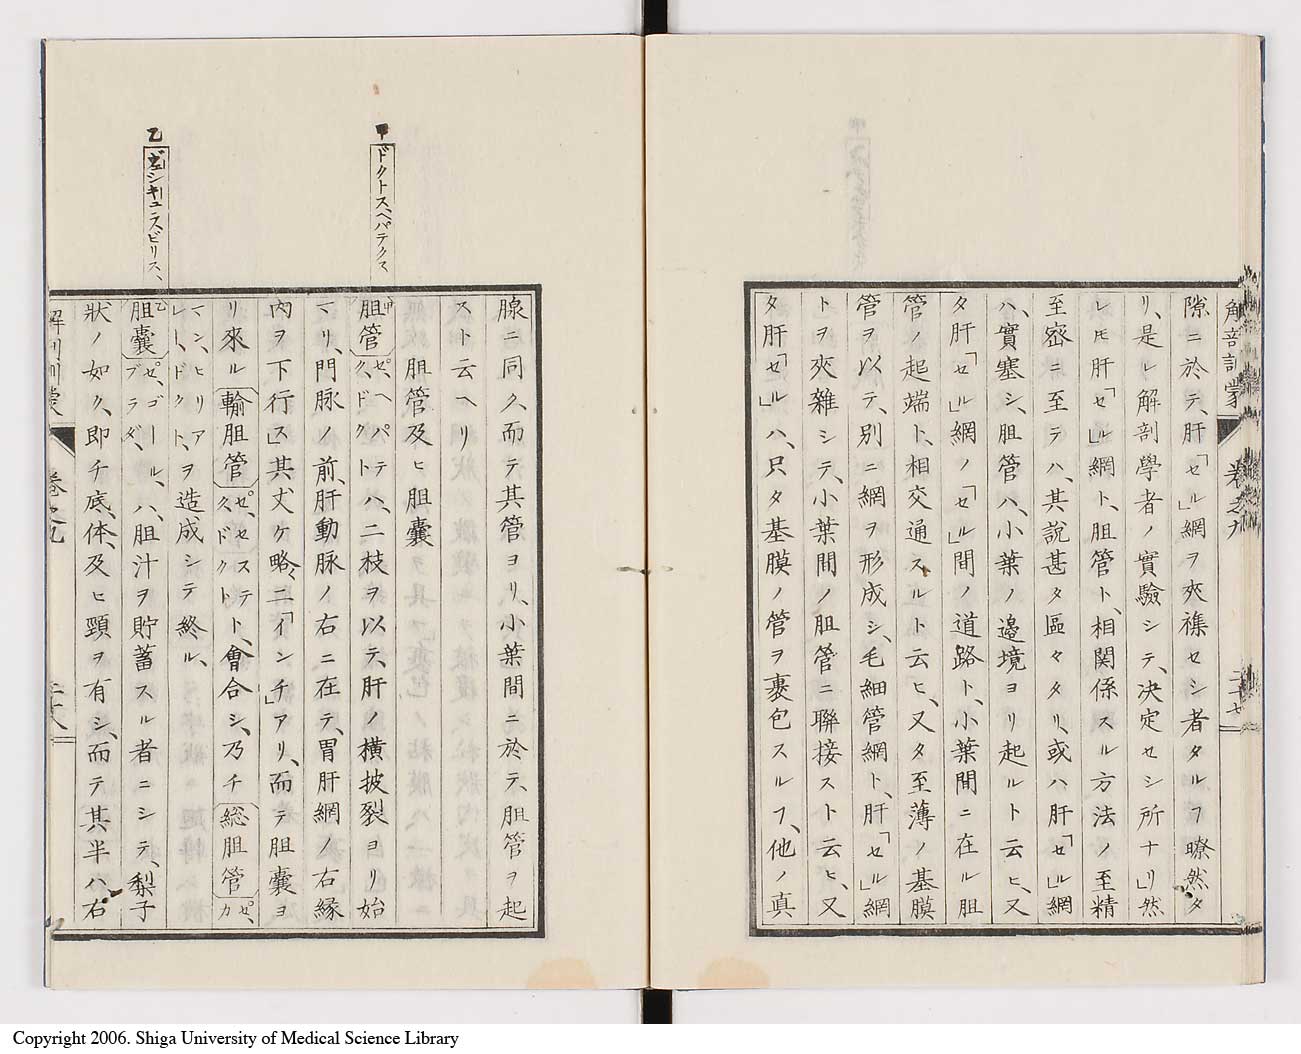 解剖訓蒙 巻之九 二十七
隙ニ於テ、肝「セル」網ヲ夾襍セシ者タルヿ瞭然タ
リ、是レ解剖學者ノ實驗シテ、决定セシ所ナリ」然
レ𪜈肝「セル」網ト、胆管ト、相関係スル方法ノ至精
至密ニ至テハ、其説甚タ區々タリ、或ハ肝「セル」網
ハ、實塞シ、胆管ハ、小葉ノ邉境ヨリ起ルト云ヒ、又
タ肝「セル」網ノ「セル」間ノ道路ト、小葉間ニ在ル胆
管ノ起端ト、相交通スルト云ヒ、又タ至薄ノ基膜
管ヲ以テ、別ニ網ヲ形成シ、毛細管網ト、肝「セル」網
トヲ夾雜シテ、小葉間ノ胆管ニ聯接スト云ヒ、又
タ肝「セル」ハ、只タ基膜ノ管ヲ裹包スルヿ、他ノ真
腺ニ同ク、而テ其管ヨリ、小葉間ニ於テ、胆管ヲ起
スト云ヘリ
胆管及ヒ胆囊
甲
ドクトス、ヘパテクス
胆管 ゼ、ヘパテック、ドクト ハ、二枝ヲ以テ、肝ノ横披裂ヨリ始
マリ、門脉ノ前、肝動脉ノ右ニ在テ、胃肝網ノ右縁
内ヲ下行ス」其丈ケ略々、二「インチ」アリ、而テ胆囊ヨ
リ來ル輸胆管 ゼ、セステック、ドクト ト、會合シ、乃チ総胆管 ゼ、カ
マン、ヒリアレー、ドクト、 ヲ造成シテ終ル、
乙
ヴェシキュラ、スビリス、
胆囊 ゼ、ゴール、ブラダ、 ハ、胆汁ヲ貯蓄スル者ニシテ、梨子
狀ノ如ク、即チ底、体、及ヒ頸ヲ有シ、而テ其半ハ右
解剖訓蒙 巻之九 二十八
Copyright 2006. Shiga University of Medical Science Library